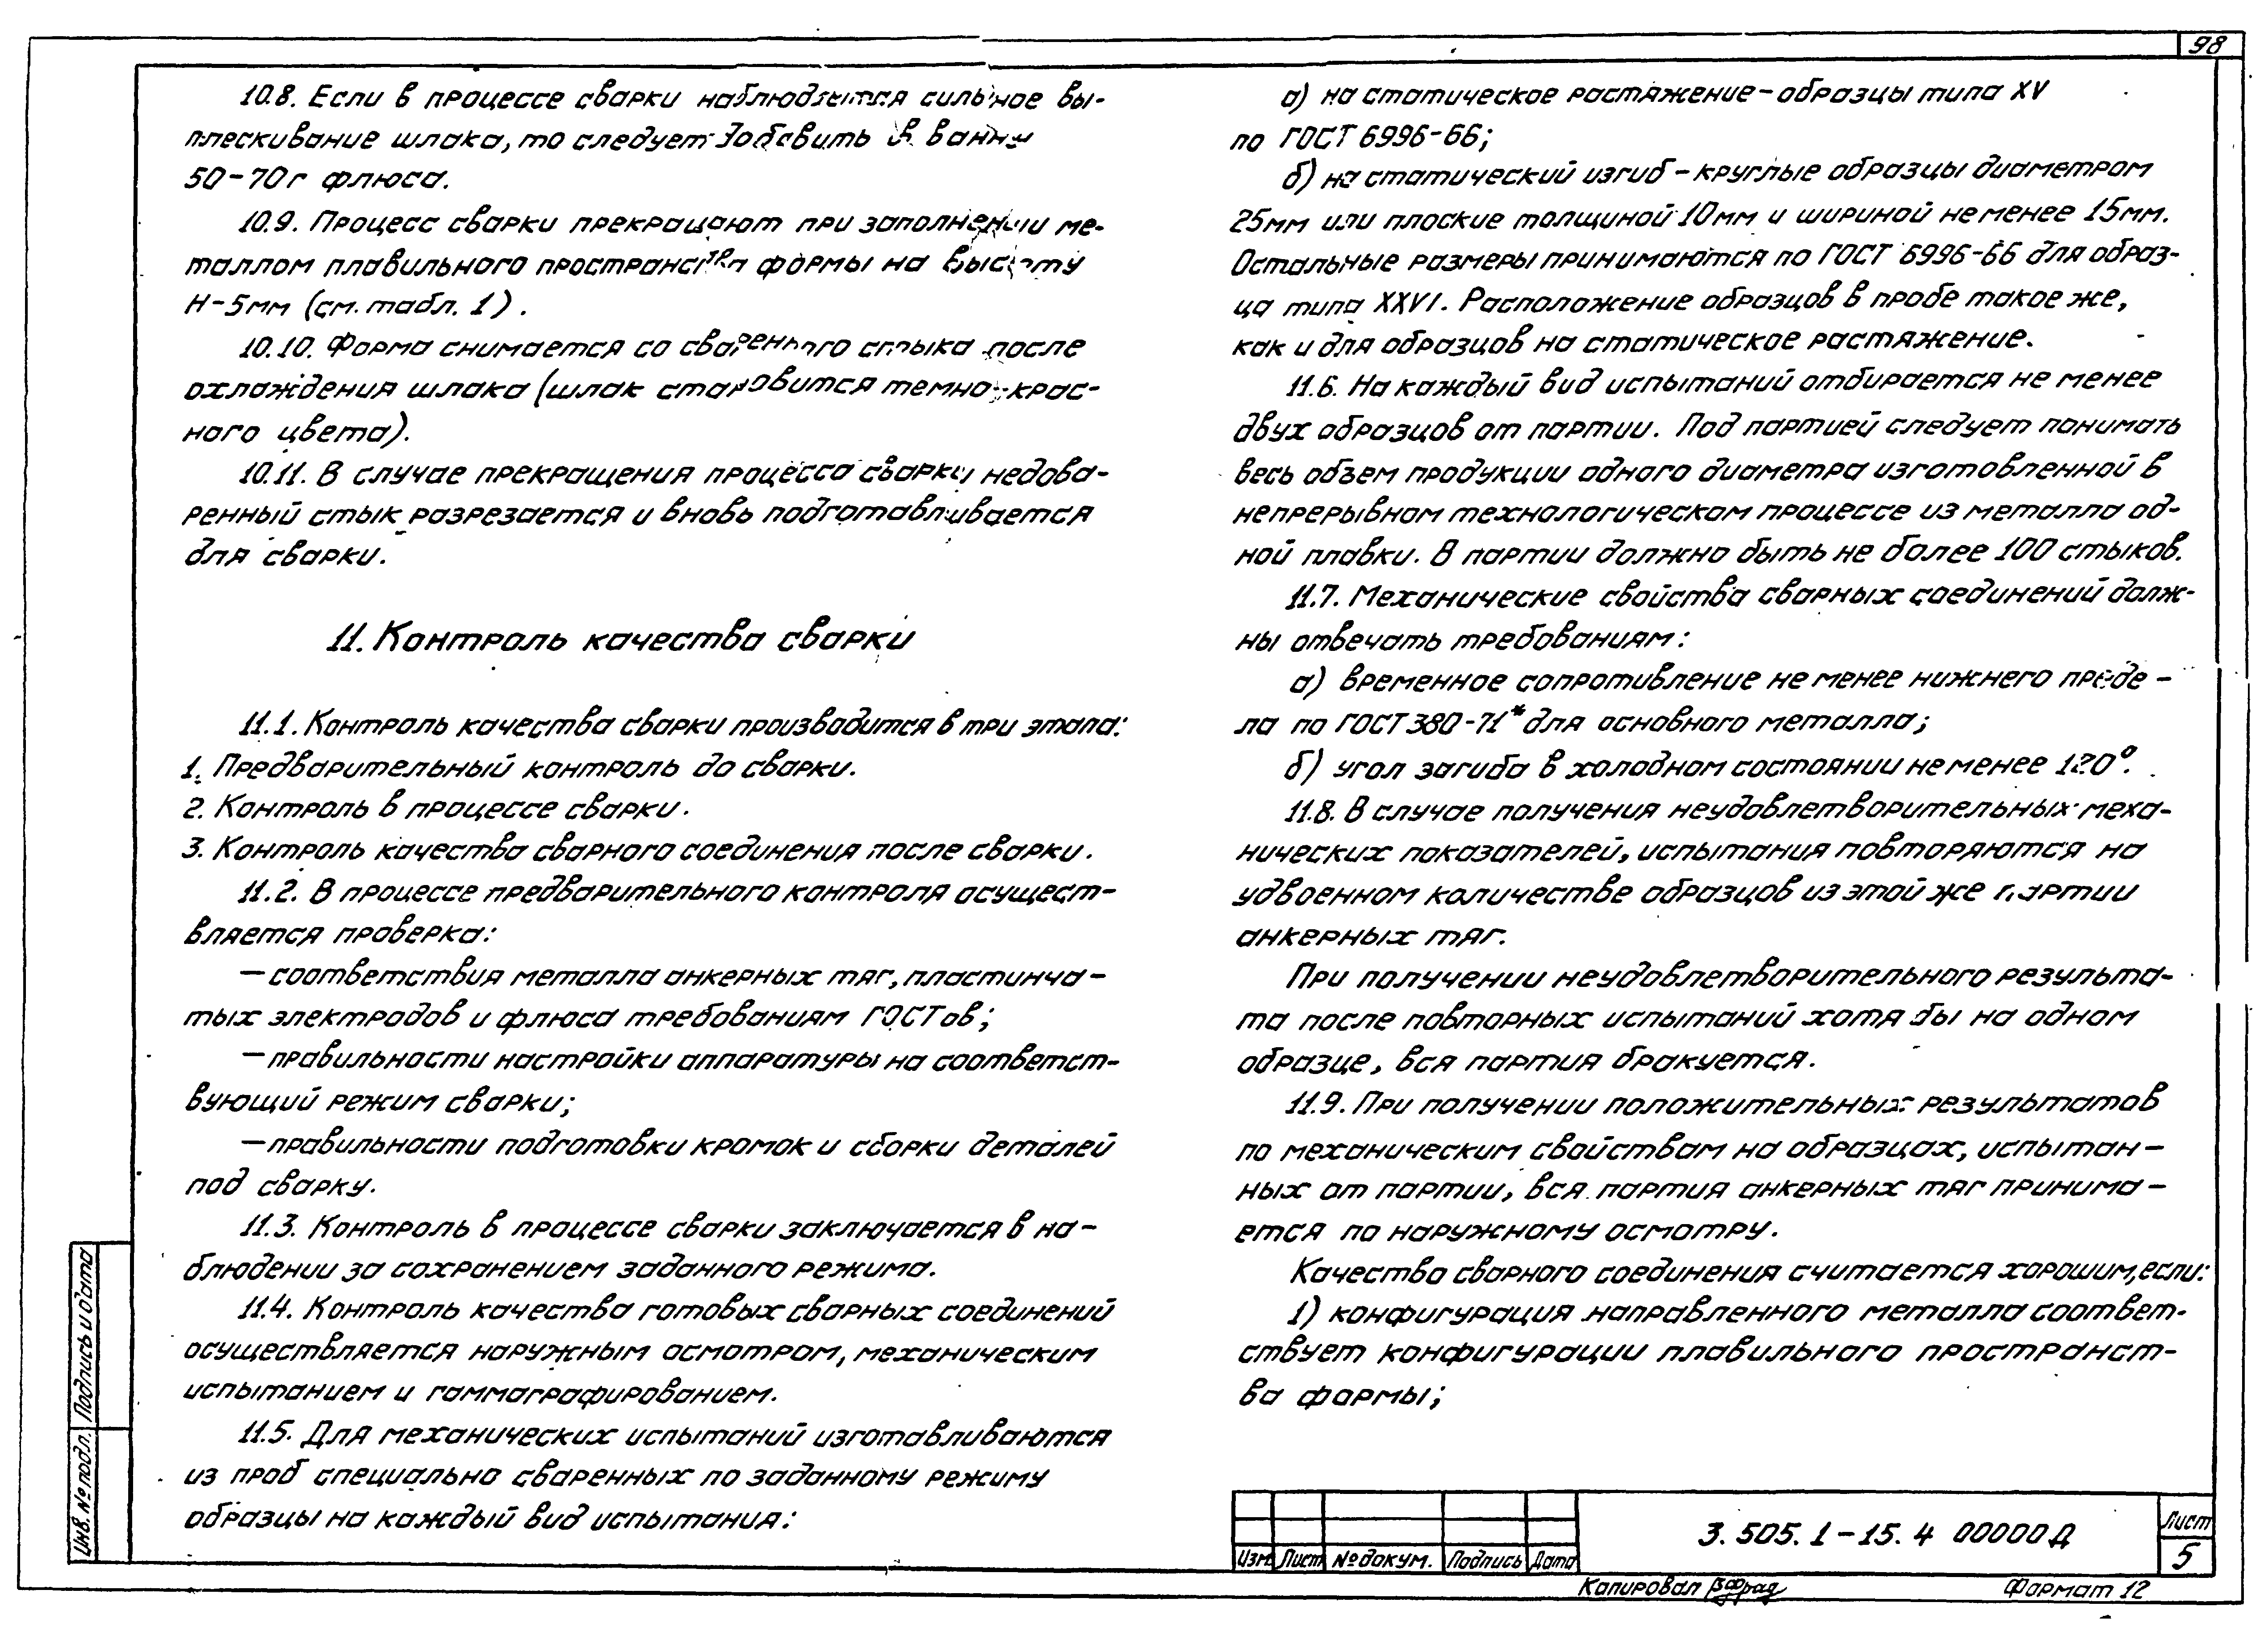 98
10.8. Если в процессе сварки наблюдается сильное вы-
плескивание шлака, то следует добавить в ванну
50-70г флюса.
10.9. Процесс сварки прекращают при заполнении ме-
таллом плавильного пространства формы на высоту
Н-5мм (см. табл. 1).
10.10. Форма снимается со сваренного стыка после
охлаждения шлака (шлак становится темно-крас-
ного цвета).
10.11. В случае прекращения процесса сварки недова-
ренный стык разрезается и вновь подготавливается
для сварки.
11. Контроль качества сварки
11.1. Контроль качества сварки производится в три этапа:
1. Предварительный контроль до сварки.
2. Контроль в процессе сварки.
3. Контроль качества сварного соединения после сварки.
11.2. В процессе предварительного контроля осущест-
вляется проверка:
—соответствия металла анкерных тяг, пластинча-
тых электродов и флюса требованиям ГОСТов;
—правильности настройки аппаратуры на соответст-
вующий режим сварки;
—правильности подготовки кромок и сборки деталей
под сварку.
11.3. Контроль в процессе сварки заключается в на-
блюдении за сохранением заданного режима.
11.4. Контроль качества готовых сварных соединений
осуществляется наружным осмотром, механическим
испытанием и гаммаграфированием.
11.5. Для механических испытаний изготавливаются
из проб специально сваренных по заданному режиму
образцы на каждый вид испытания:
а) на статическое растяжение-образцы типа XV
по ГОСТ 6996-66;
б) на статический изгиб-круглые образцы диаметром
25мм или плоские толщиной 10мм и шириной не менее 15мм.
Остальные размеры принимаются по ГОСТ 6996-66 для образ-
ца типа XXVI. Расположение образцов в пробе такое же,
как и для образцов на статическое растяжение.
11.6. На каждый вид испытаний отбирается не менее
двух образцов от партии. Под партией следует понимать
весь объем продукции одного диаметра изготовленной в
непрерывном технологическом процессе из металла од-
ной плавки. В партии должно быть не более 100 стыков.
11.7. Механические свойства сварных соединений долж-
ны отвечать требованиям:
а) временное сопротивление не менее нижнего преде-
ла по ГОСТ 380-71* для основного металла;
б) угол загиба в холодном состоянии не менее 120°.
11.8. В случае получения неудовлетворительных меха-
нических показателей, испытания повторяются на
удвоенном количестве образцов из этой же партии
анкерных тяг.
При получении неудовлетворительного результа-
та после повторных испытаний хотя бы на одном
образце, вся партия бракуется.
11.9. При получении положительных результатов
по механическим свойствам на образцах, испытан-
ных от партии, вся партия анкерных тяг принима-
ется по наружному осмотру.
Качество сварного соединения считается хорошим, если:
1) конфигурация направленного металла соответ-
ствует конфигурации плавильного пространст-
ва формы;
Подпись и дата
Инв. № подл.
Изм. Лист № докум. Подпись Дата
3.505.1-15.4 00000Д
Лист
5
Копировал
Формат 12